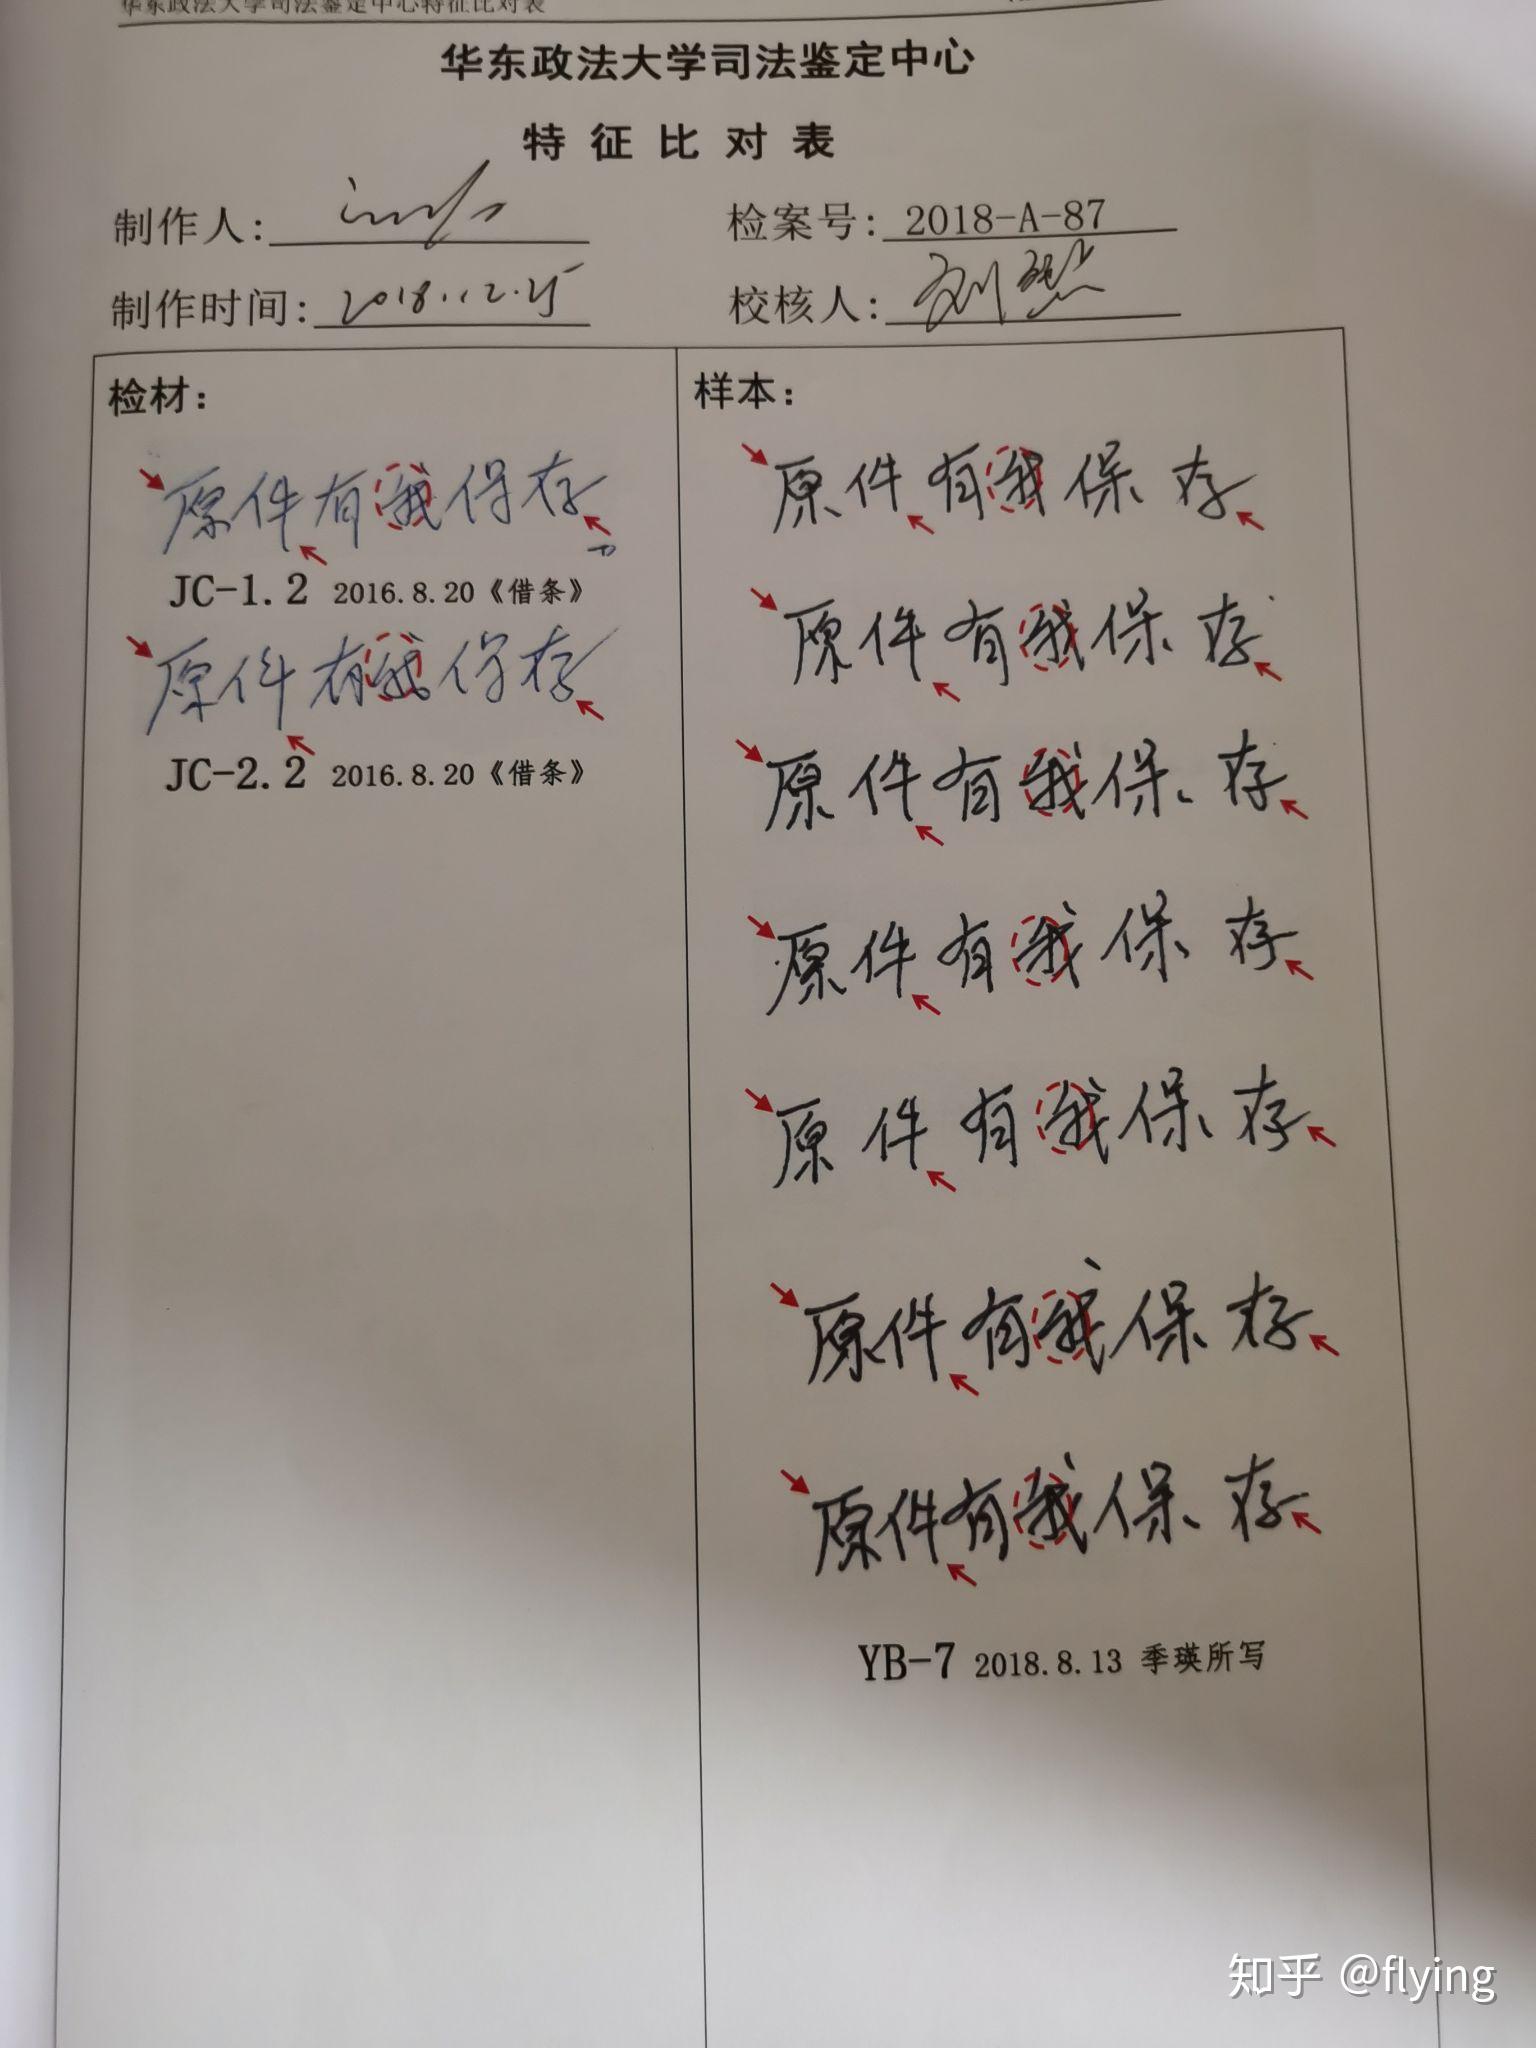 华东政法大学司法鉴定中心特征比对表
华东政法大学司法鉴定中心
特征比对表
制作人: 检案号: 2018-A-87
制作时间: 2018.12.25 校核人: 刘
检材:
原件有我保存
JC-1.2 2016.8.20《借条》
原件有我保存
JC-2.2 2016.8.20《借条》
样本:
原件有我保存
原件有我保存
原件有我保存
原件有我保存
原件有我保存
原件有我保存
原件有我保存
YB-7 2018.8.13 季瑛所写
知乎 @flying